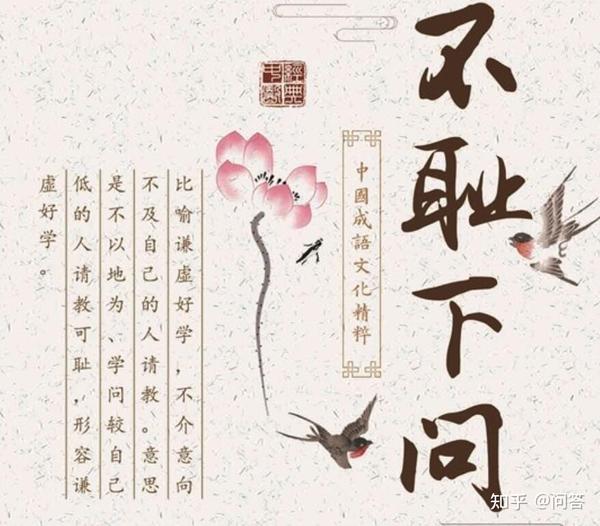 不耻下问
經典
中國成語文化精粹
比喻谦虚好学，不介意向
不及自己的人请教。意思
是不以地为、学问较自己
低的人请教可耻，形容谦
虚好学。
知乎 @问答